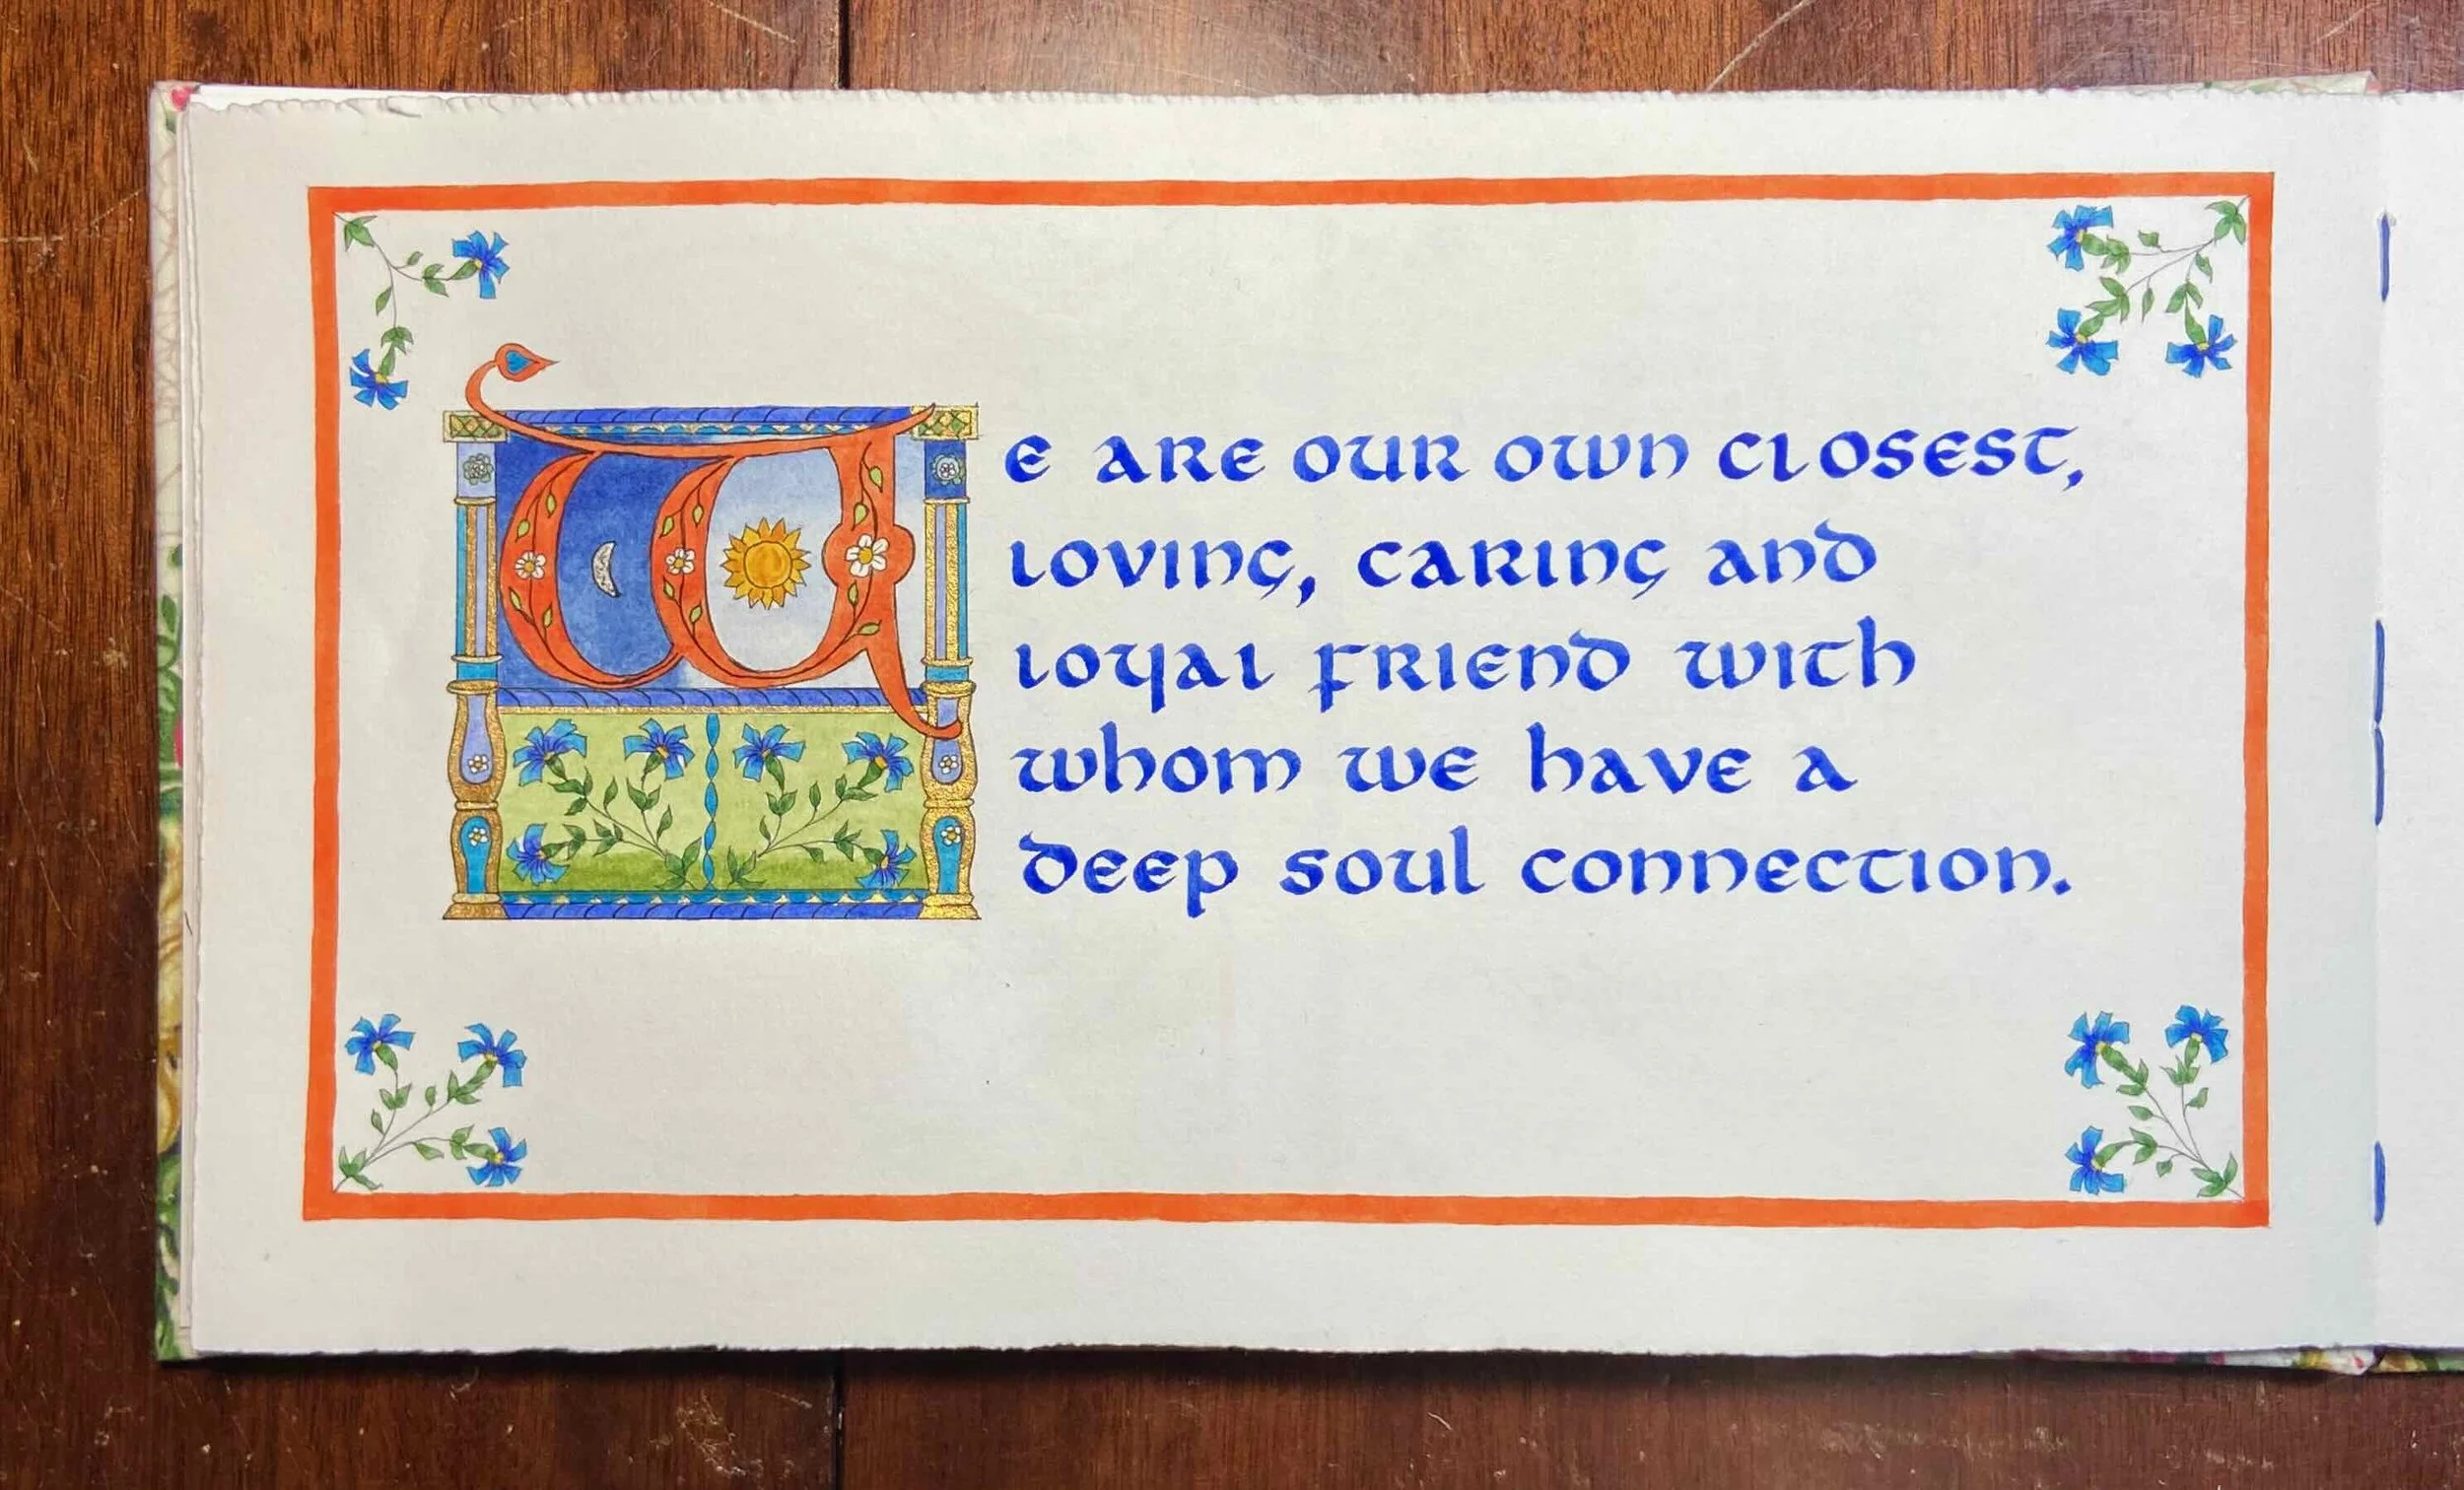 We are our own closest,
loving, caring and
loyal friend with
whom we have a
deep soul connection.